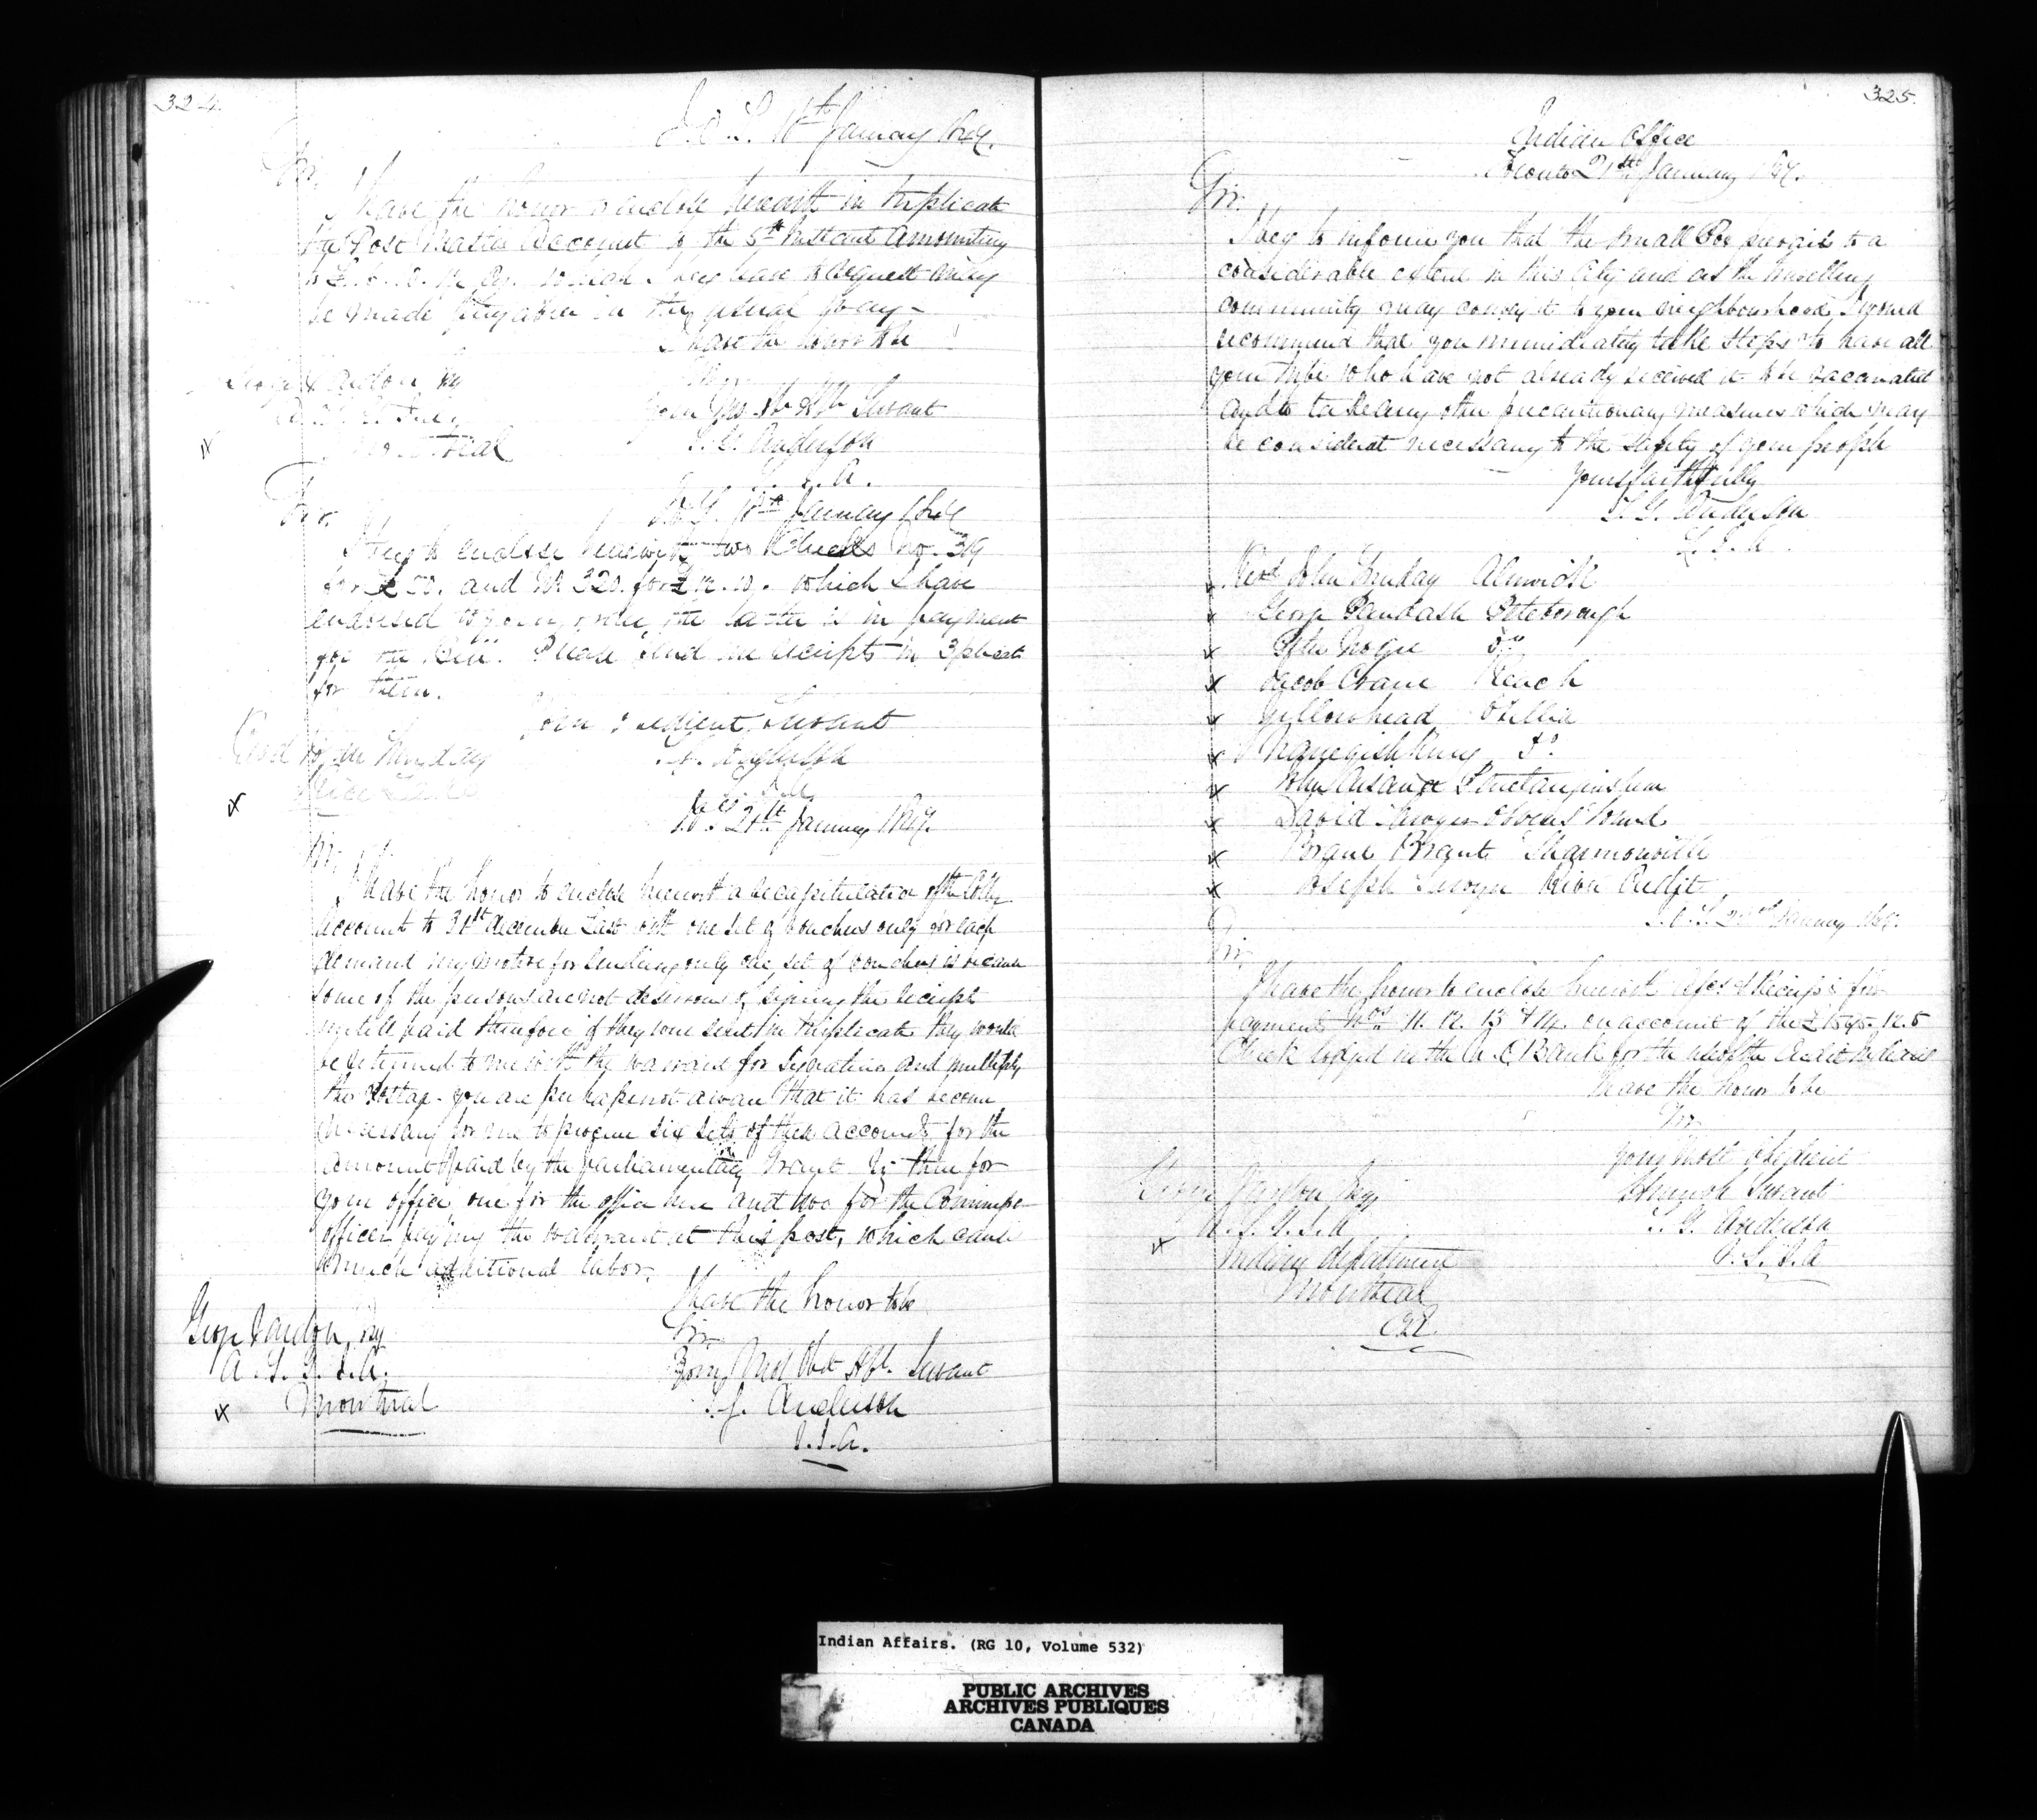 324.
18th January 1847.
Sir,
I have the honor to enclose herewith in triplicate
the Post Master Account to the 5th Instant amounting
to £ which I beg leave to request may
be made payable in the usual way -
I have the honor to be
Sir
George Vardon Esq
Your Mo. Ob. Hble Servant
T. G. Anderson
Montreal
S. I. A.
18th January 1847
Sir.
I beg to enclose herewith two Checks No. 319
for £50. and No. 320. for £12.10. which I have
endorsed to your order, the latter is in payment
for the Bell. Please send me receipts in 3plicate
for them.
Your Obedient Servant
Revd John Sunday
T. G. Anderson
Rice Lake
S. I. A.
21st January 1847.
Sir,
I have the honor to enclose herewith a recapitulation of the
account to 31st December last with one set of vouchers only for each
demand my motive for sending only one set of vouchers is because
some of the persons are not desirous of signing the receipt
until paid therefore if they were sent in triplicate they would
be returned to me with the warrant for signature and multiply
the postage - you are perhaps not aware that it has become
necessary for me to procure six sets of these accounts for the
amount paid by the parliamentary Grant. Viz three for
your office, one for the office here and two for the Commisst
officer paying the warrant at this post, which cause
much additional labor.
I have the honor to be
Sir
George Vardon, Esq
Your Most Obt Hble. Servant
A. S. G. I. A.
T. G. Anderson
Montreal
S. I. A.
325.
Indian Office
Toronto 21st January 1847.
Sir.
I beg to inform you that the Small Pox prevails to a
considerable extent in this City and as the travelling
community may convey it to your neighbourhood, I would
recommend that you immediately take steps to have all
your tribe who have not already received it to be vaccinated
and to take any other precautionary measures which may
be considered necessary to the safety of your people
Yours faithfully
T. G. Anderson
S. I. A.
x Revd John Sunday Alnwick
x George Paudash Peterborough
x Peter Nogee Do
x Jacob Crane Reach
x Yellowhead Orillia
x Do
x John Aisance Penetanguishene
x David Sawyer Owens Sound
x Brant Brant Shannonville
x Joseph Sawyer River Credit
22nd January 1847.
Sir,
I have the honor to enclose herewith Receipts for
payments Nos. 11. 12. 13 & 14. on account of the
Check lodged in the U. C. Bank for the use of the Credit Indians
I have the honor to be
Sir
Your Most Obedient
George Vardon Esq
Humble Servant
A. S. G. I. A
T. G. Anderson
x Indian Department
S. I. A
Montreal
Indian Affairs. (RG 10, Volume 532)
PUBLIC ARCHIVES
ARCHIVES PUBLIQUES
CANADA